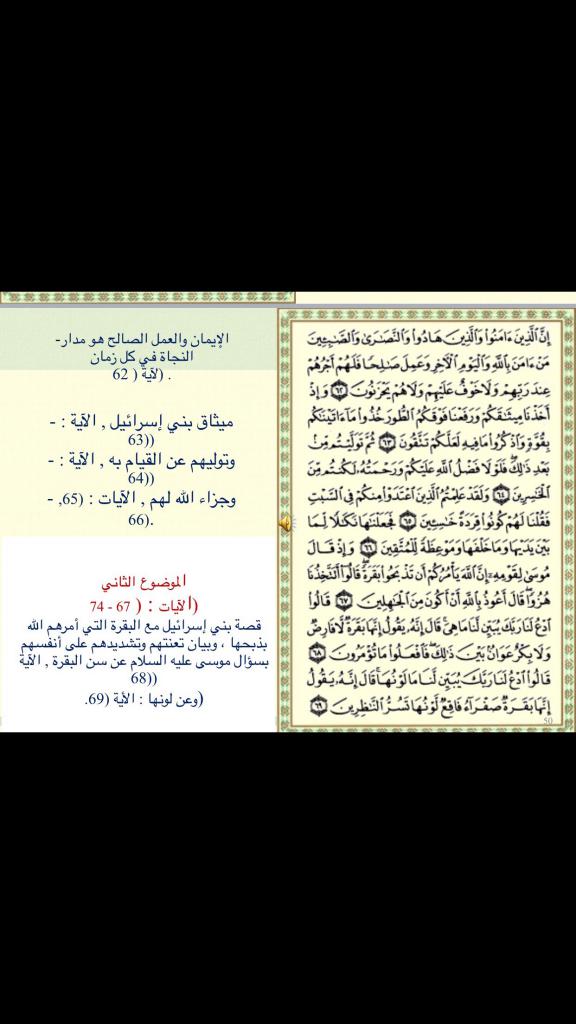 إِنَّ ٱلَّذِينَ ءَامَنُوا۟ وَٱلَّذِينَ هَادُوا۟ وَٱلنَّصَٰرَىٰ وَٱلصَّٰبِـِٔينَ
مَنْ ءَامَنَ بِٱللَّهِ وَٱلْيَوْمِ ٱلْءَاخِرِ وَعَمِلَ صَٰلِحًا فَلَهُمْ أَجْرُهُمْ
عِندَ رَبِّهِمْ وَلَا خَوْفٌ عَلَيْهِمْ وَلَا هُمْ يَحْزَنُونَ ٦٢ وَإِذْ
أَخَذْنَا مِيثَٰقَكُمْ وَرَفَعْنَا فَوْقَكُمُ ٱلطُّورَ خُذُوا۟ مَآ ءَاتَيْنَٰكُم
بِقُوَّةٍ وَٱذْكُرُوا۟ مَا فِيهِ لَعَلَّكُمْ تَتَّقُونَ ٦٣ ثُمَّ تَوَلَّيْتُم مِّنۢ
بَعْدِ ذَٰلِكَ فَلَوْلَا فَضْلُ ٱللَّهِ عَلَيْكُمْ وَرَحْمَتُهُۥ لَكُنتُم مِّنَ
ٱلْخَٰسِرِينَ ٦٤ وَلَقَدْ عَلِمْتُمُ ٱلَّذِينَ ٱعْتَدَوْا۟ مِنكُمْ فِى ٱلسَّبْتِ
فَقُلْنَا لَهُمْ كُونُوا۟ قِرَدَةً خَٰسِـِٔينَ ٦٥ فَجَعَلْنَٰهَا نَكَٰلًا لِّمَا
بَيْنَ يَدَيْهَا وَمَا خَلْفَهَا وَمَوْعِظَةً لِّلْمُتَّقِينَ ٦٦ وَإِذْ قَالَ
مُوسَىٰ لِقَوْمِهِۦٓ إِنَّ ٱللَّهَ يَأْمُرُكُمْ أَن تَذْبَحُوا۟ بَقَرَةً قَالُوٓا۟ أَتَتَّخِذُنَا
هُزُوًا قَالَ أَعُوذُ بِٱللَّهِ أَنْ أَكُونَ مِنَ ٱلْجَٰهِلِينَ ٦٧ قَالُوا۟
ٱدْعُ لَنَا رَبَّكَ يُبَيِّن لَّنَا مَا هِىَ قَالَ إِنَّهُۥ يَقُولُ إِنَّهَا بَقَرَةٌ لَّا فَارِضٌ
وَلَا بِكْرٌ عَوَانٌۢ بَيْنَ ذَٰلِكَ فَٱفْعَلُوا۟ مَا تُؤْمَرُونَ ٦٨
قَالُوا۟ ٱدْعُ لَنَا رَبَّكَ يُبَيِّن لَّنَا مَا لَوْنُهَا قَالَ إِنَّهُۥ يَقُولُ
إِنَّهَا بَقَرَةٌ صَفْرَآءُ فَاقِعٌ لَّوْنُهَا تَسُرُّ ٱلنَّٰظِرِينَ ٦٩
50
الإيمان والعمل الصالح هو مدار-
النجاة في كل زمان
. (لآية ( 62
ميثاق بني إسرائيل , الآية : -
((63
وتوليهم عن القيام به , الآية : -
((64
وجزاء الله لهم , الآيات : (65, -
66).
الموضوع الثاني
(الآيات : ( 67 - 74
قصة بني إسرائيل مع البقرة التي أمرهم الله
بذبحها ، وبيان تعنتهم وتشديدهم على أنفسهم
بسؤال موسى عليه السلام عن سن البقرة , الآية
((68
(وعن لونها : الأية (69.